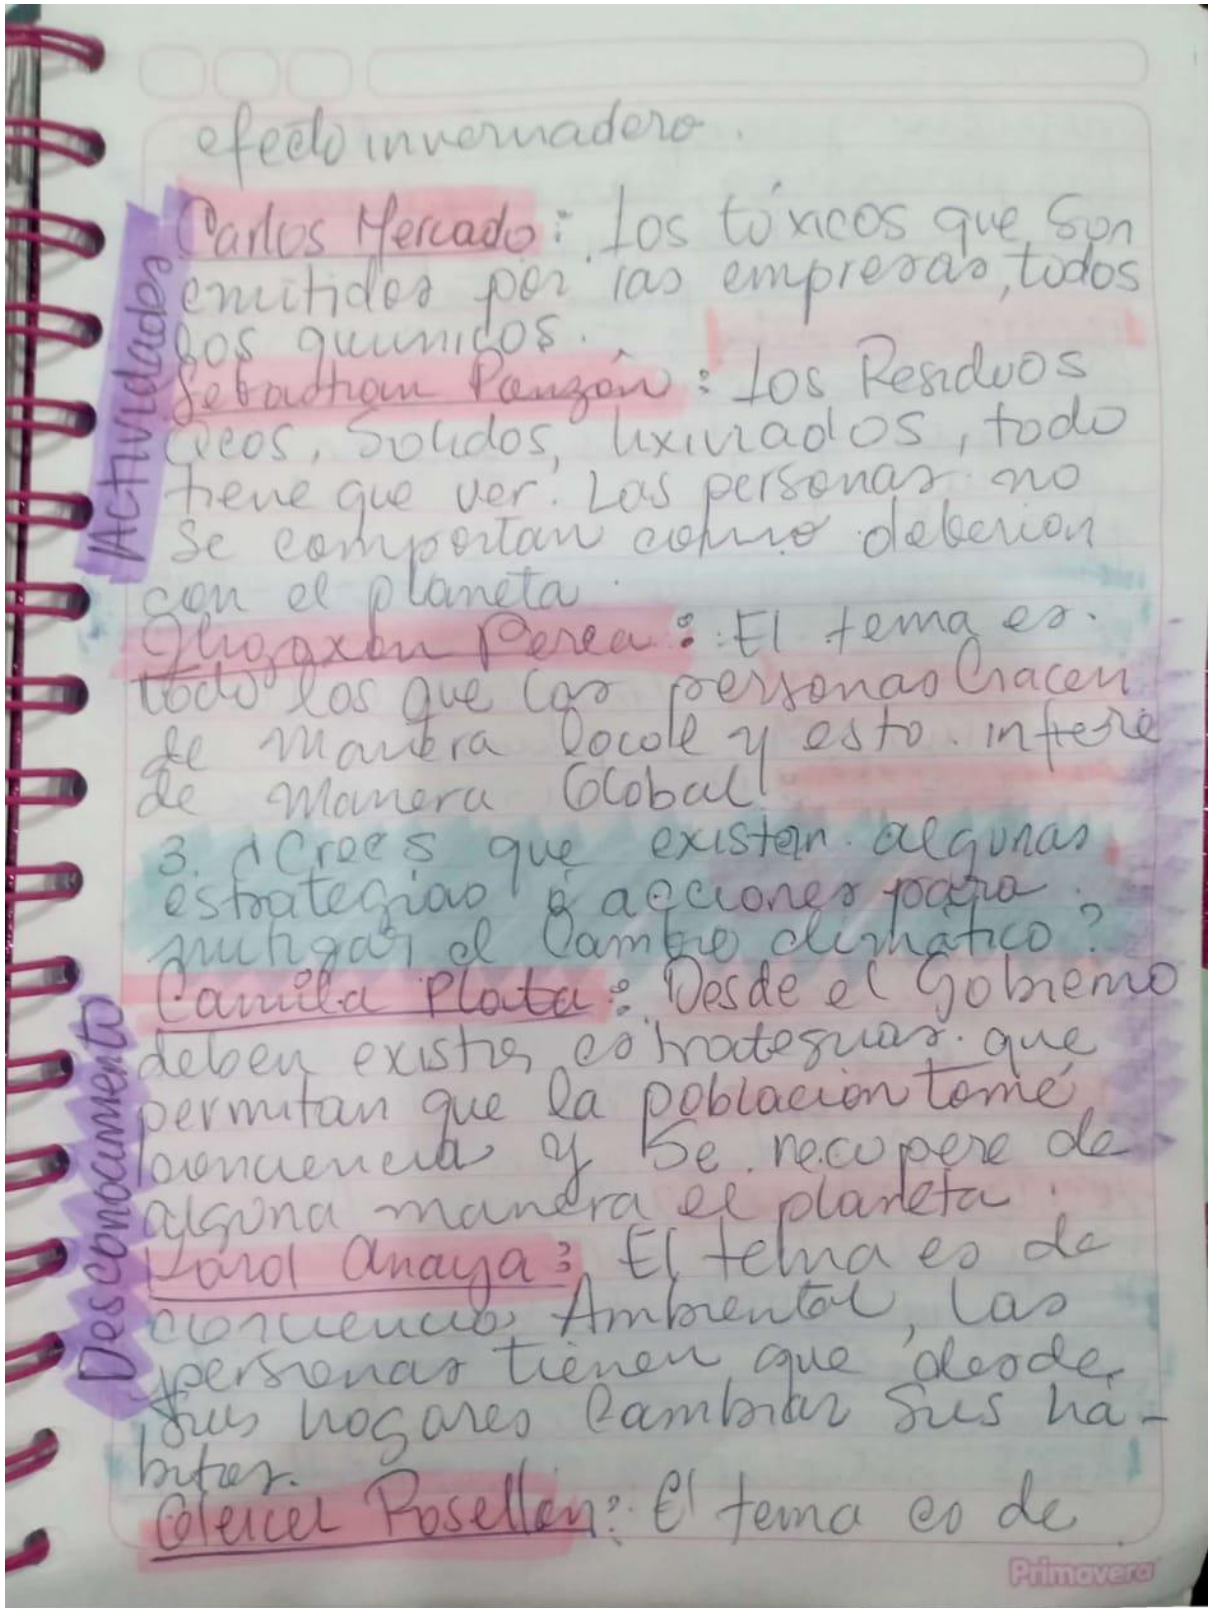 efecto invernadero.
Carlos Mercado: Los tóxicos que son
emitidos por las empresas, todos
los quimicos.
Sebasthian Ponzón: Los Residuos
, Solidos, lixiviados, todo
tiene que ver. Las personas no
se comportan como deberion
con el planeta.
Perea: El tema es
todo los que las personas hacen
de manera locale y esto infiere
de manera Global
3. ¿Crees que existen algunas
estrategias o acciones para
mitigar el Cambio climático?
Camila Plata: Desde el Gobierno
deben existir estrategias que
permitan que la población tome
conciencia y se recupere de
alguna manera el planeta.
Karol Anaya: El tema es de
conciencia Ambiental, las
personas tienen que desde
sus hogares cambiar sus há-
bitos.
Rosellón: El tema es de
Actividades
Desconocimiento
Primavera